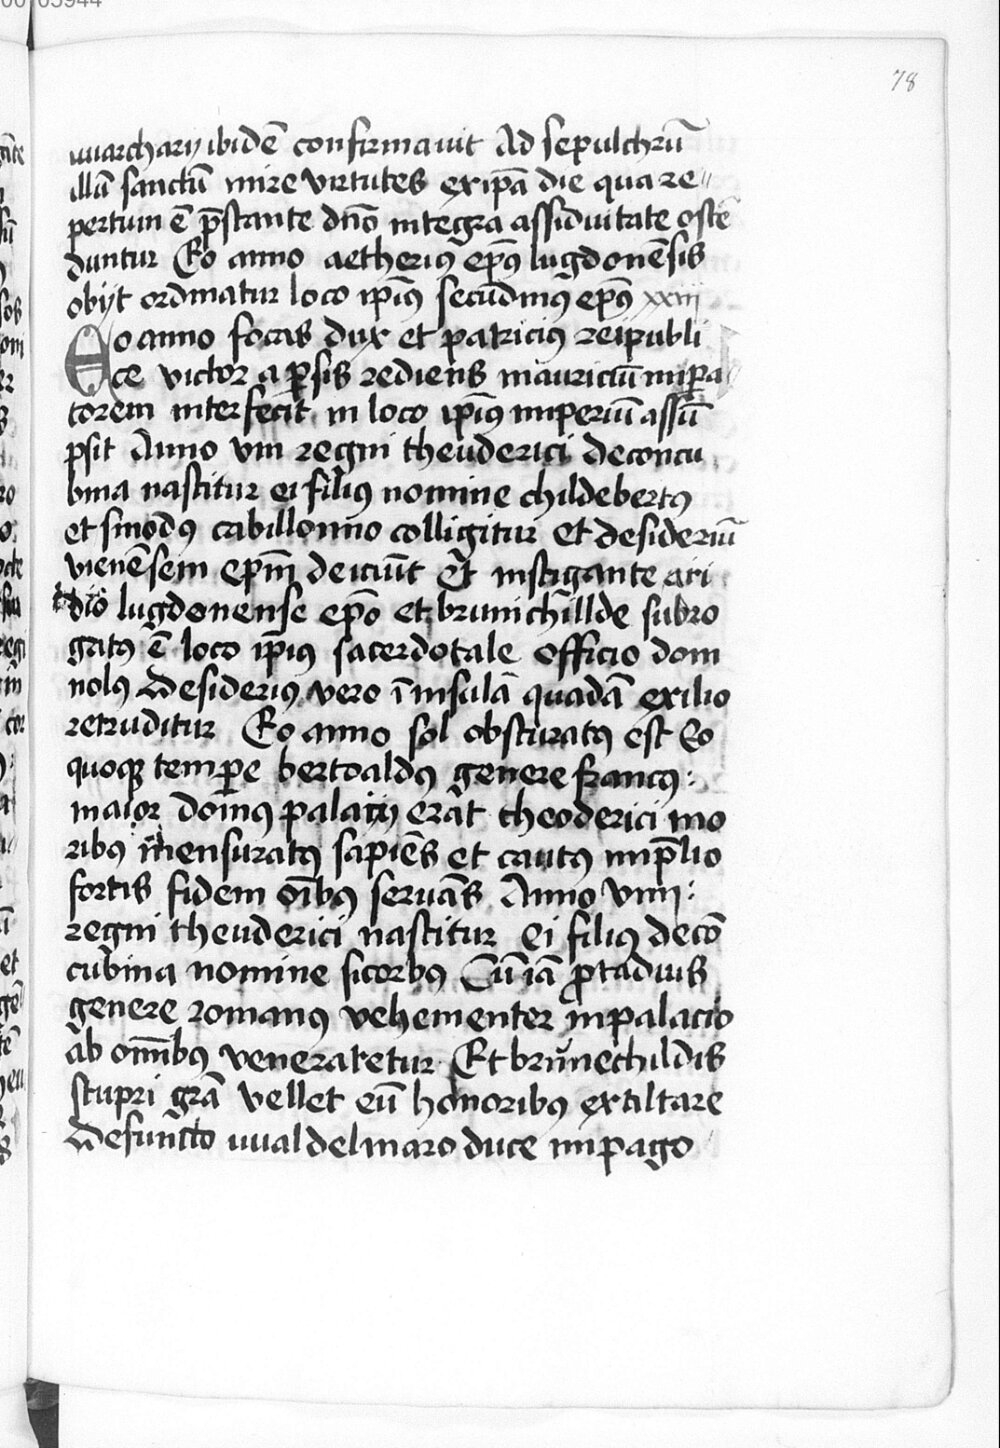 78
uuarcharij ibidē confirmauit Ad sepulchrū
illū sanctū mire virtutes exipā die qua re〃
pertum ē p̄stante dn̄o integra assiduitate ostē
duntur Eo anno aetherius ep̄s lugdonēsis
obijt ordinatur loco ip̄ius secūdinus ep̄s xxiij
Eo anno focas dux et patricius reipubli
ce victor a persis rediens mauriciū impa
torem interfecit in loco ip̄ius imperiū assū
psit Anno viii regni theuderici deconcu
bina nascitur ei filius nomine childebertus
et sinodus cabillonno colligitur et desideriū
vienēsem ep̄m deiciūt Et instigante ari
dio lugdonense ep̄o et brunichillde subro
gatus ē loco ip̄ius sacerdotale officio dom
nolus Desiderius vero ī insulā quadā exilio
retruditur Eo anno sol obscuratus est Eo
quoque tempore bertoaldus genere francus:
maior domus palacij erat theoderici mo
ribus mensuratus sapiēs et cautus inp̄lio
fortis fidem oībus seruās Anno viiii:
regni theuderici nascitur ei filius decō
cubina nomine sicorbus Cū iā protaduis
genere romanus vehementer inpalacio
ab omībus veneratetur Et brunechildis
stupri grā vellet eū honoribus extiltare
Defuncto uualdelmaro duce inpago